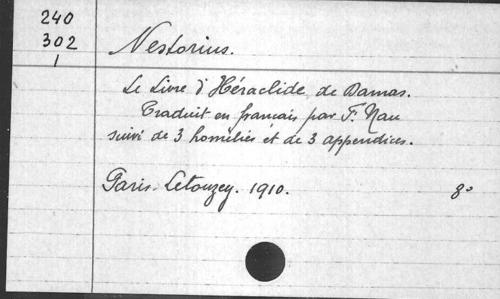 240
302
1
Nestorius.
Le Livre d'Héraclide de Damas.
Traduit en français par F. Nau
suivi de 3 homélies et de 3 appendices.
Paris. Letouzey. 1910. 8º